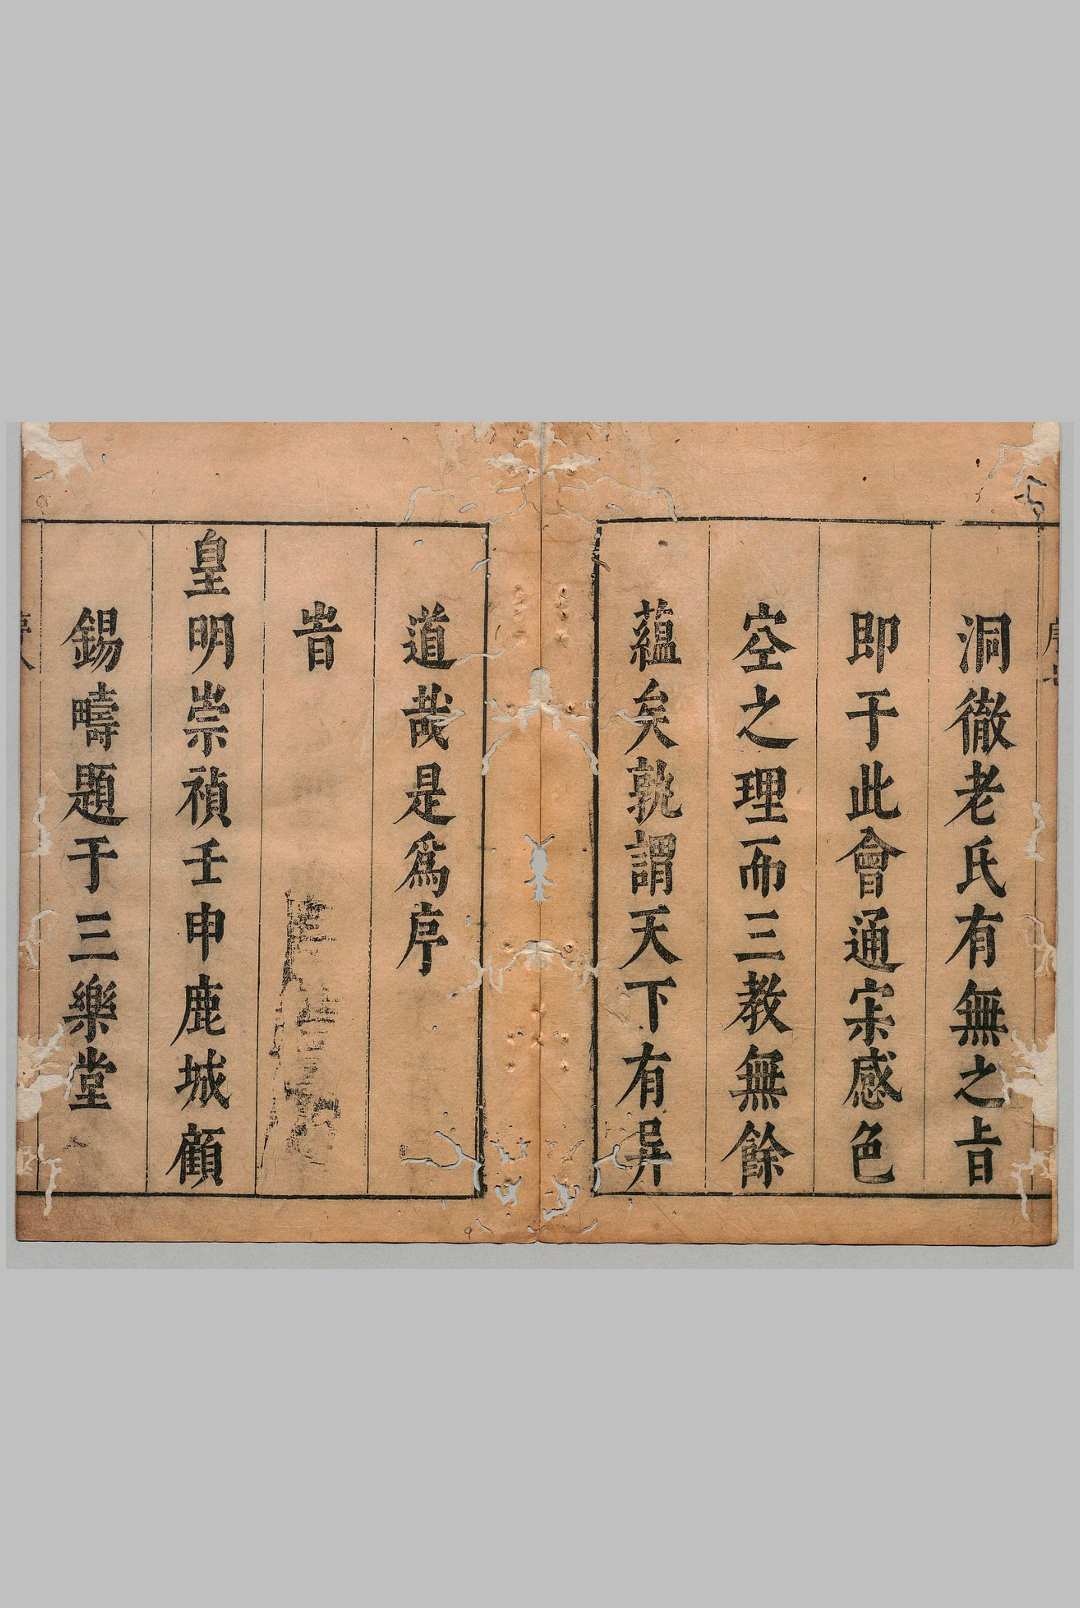 洞徹老氏有無之旨
即于此會通宗感色
空之理而三教無餘
蘊矣孰謂天下有异
道哉是爲序
旹
皇明崇禎壬申鹿城顧
錫疇題于三樂堂